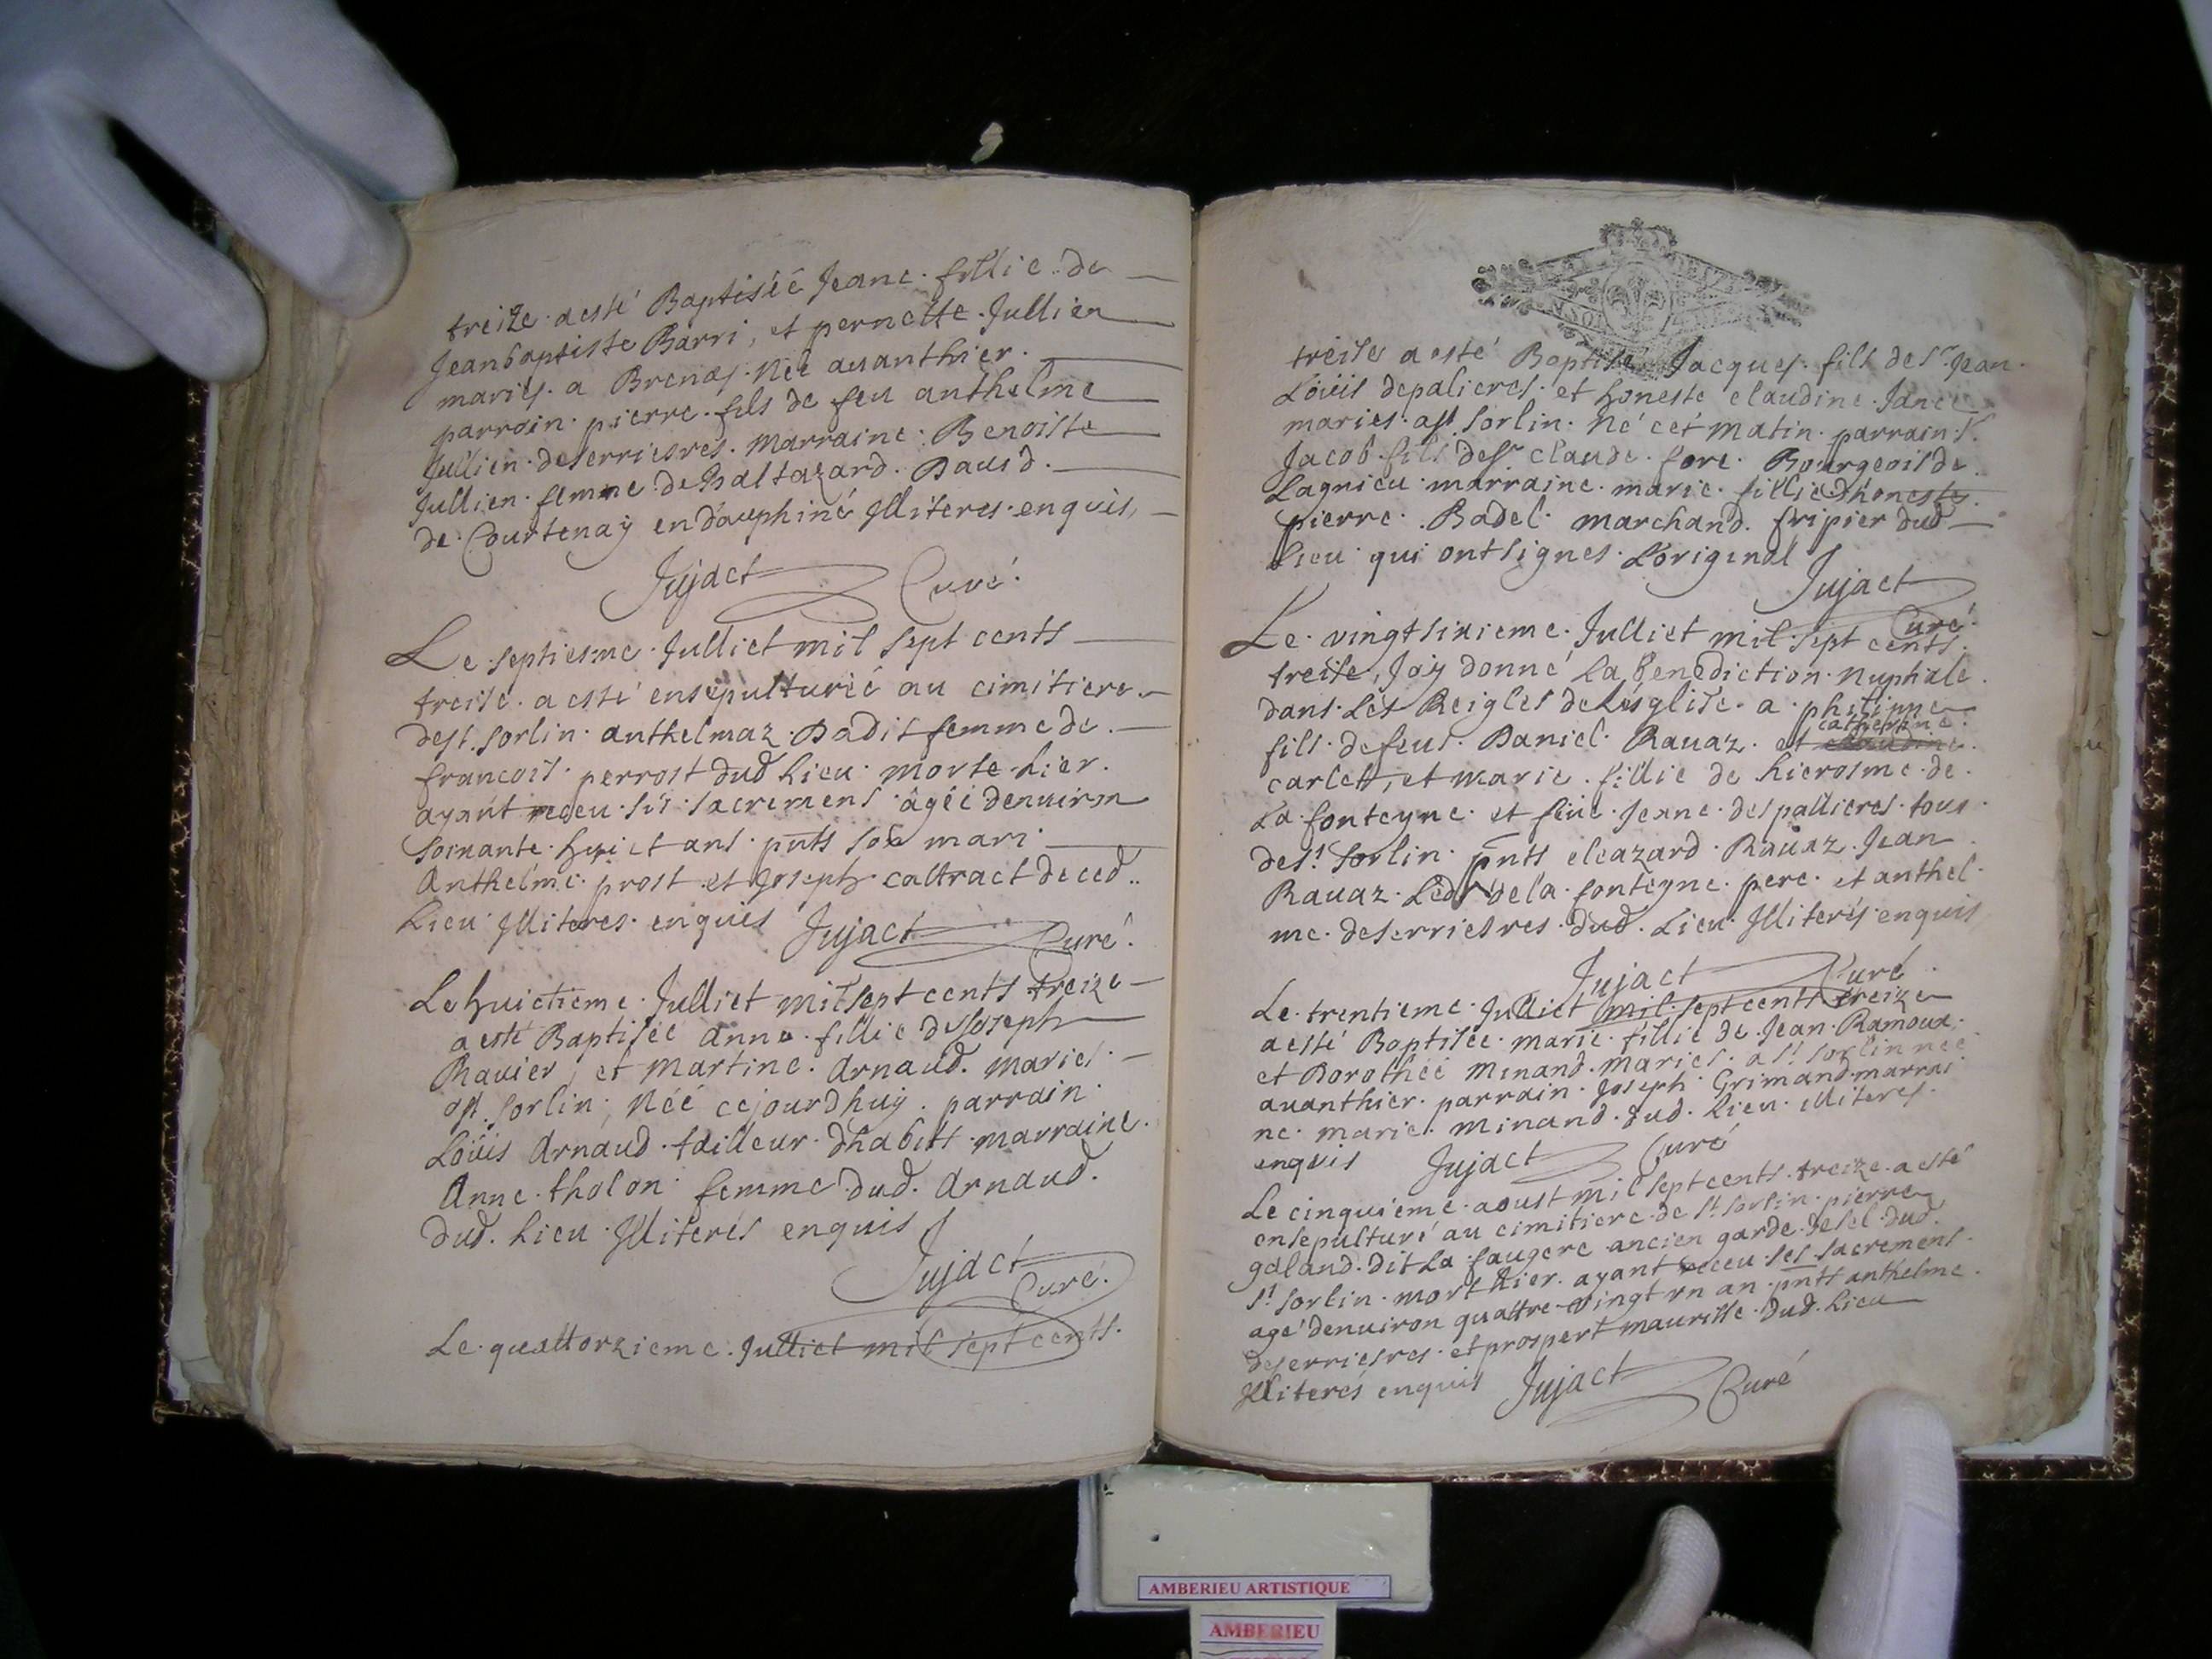 treize a esté Baptiséé Jeane fillie de
Jeanbaptiste Barri, et pernette Jullien
mariés a Brenas née auanthier.
parrain pierre fils de feu anthelme
Jullien deserriesres. marraine Benoiste
Jullien femme de Baltazard Dauid.
de Courtenaÿ en dauphiné Illiteres enquis,
Jujact Curé.
Le septiesme Julliet mil sept cents
treise a esté ensepulturéé au cimitiere
de st. sorlin anthelmaz Badit femme de
francois perrost dud lieu morte hier.
ayant receu sés sacremens ágéé denuiron
soixante huict ans pnts son mari
Anthelme prost et Joseph caltract de ced..
lieu Illiteres enquis Jujact Curé.
Le huictieme Julliet mil sept cents treize
a esté Baptiséé Anne fillie de Joseph
Ravier, et Martine Arnaud. mariés
a st. sorlin, Néé cejourdhuÿ. parrain
Loüis Arnaud tailleur dhabits marraine.
Anne tholon femme dud. Arnaud.
dud. lieu Illiterés enquis
Jujact Curé.
Le quattorzieme Julliet mil sept cents.
treise a esté Baptisé Jacques fils de sr. Jean
Loüis depalieres et honeste claudine Jance
mariés a st sorlin. Né cét matin parrain sr.
Jacob fils de sr claude fore Bourgeois de
Lagnieu marraine marie fillie dhoneste
pierre Badel marchand fripier dud
lieu qui ont signes L'original
Jujact Curé.
Le vingtsixieme Julliet mil sept cents
treise, Jaÿ donné la benediction nuptiale
dans Les Reigles de L'esglise a philippe
catherine.
fils de feus Daniel Rauaz et claudine
carlet, et marie fillie de hierosme de
La fonteyne et feüe Jeane despallieres tous
de st sorlin pnts eleazard Rauaz Jean
Rauaz Led. de la fonteyne pere et anthel
me deserriesres dud. Lieu Illiterés enquis
Jujact Curé.
Le trentieme Julliet mil sept cents treize
a esté Baptisée marie fillie de Jean Ramoux
et Dorothéé minand mariés a st sorlin néé
auanthier. parrain Joseph Grimand marrai
ne marie minand dud. lieu illiteres
enquis Jujact Curé
Le cinquieme aoust mil sept cents treize a esté
ensepulturé au cimitiere de st sorlin pierre
galand dit La faugere ancien garde de sel dud.
st sorlin mort hier ayant receu ses sacremens
agé denuiron quattre vingt vn an pnts anthelme
deserriesres et prospert maurisse dud. lieu
Illiterés enquis Jujact Curé
AMBERIEU ARTISTIQUE
AMBERIEU